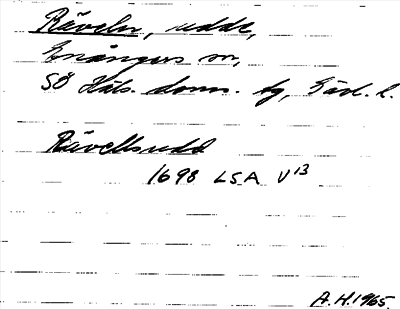 Räveln, udde,
Enångers sn,
SÖ Häls. doms. tg, Gävl. l.
Rävellsudd
1698 LSA V 13
A.H. 1965.